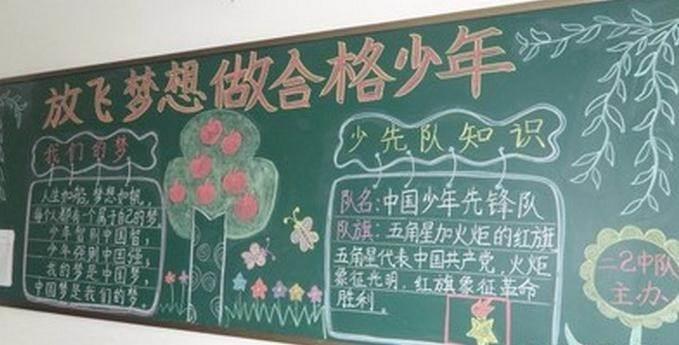 放飞梦想做合格少年
我们的梦
人生如船，梦想如帆。
每个人都有一个属于自己的梦
少年智则中国智，
少年强则中国强，
我的梦是中国梦，
中国梦是我们的梦。
少先队知识
队名：中国少年先锋队
队旗：五角星加火炬的红旗
五角星代表中国共产党，火炬
象征光明，红旗象征革命
胜利。
二乙中队
主办